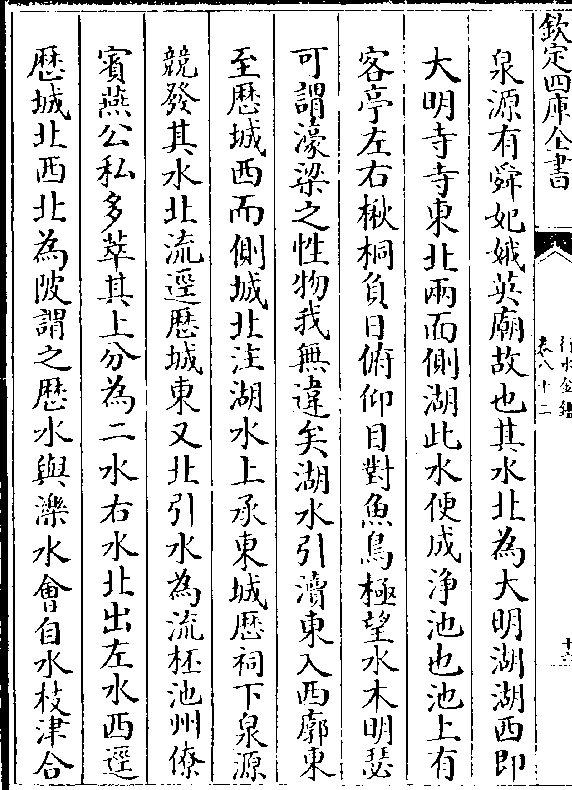 欽定四庫全書
行水金鑑
卷八十二
泉源有舜妃娥英廟故也其水北為大明湖湖西即
大明寺寺東北兩面側湖此水便成淨池也池上有
客亭左右楸桐負日俯仰目對魚鳥極望水木明瑟
可謂濠梁之性物我無違矣湖水引瀆東入西廓東
至厯城西而側城北注湖水上承東城厯祠下泉源
競發其水北流逕厯城東又北引水為流杯池州僚
賓燕公私多萃其上分為二水右水北出左水西逕
厯城北西北為陂謂之厯水與濼水會自水枝津合